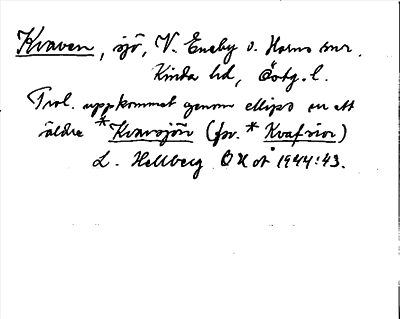 Kvaven, sjö, V. Eneby o. Horns snr.
Kinda hd, Östg. l.
Trol. uppkommet genom ellips av ett
äldre *Kvavsjön (fsv. *Kvafsior)
L. Hellberg OUÅ 1944:43.